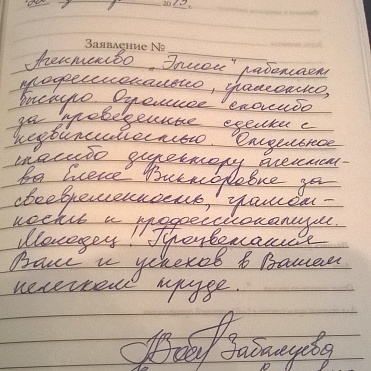 Заявление №
Агентство „Эпион" работает
профессионально, грамотно,
быстро. Огромное спасибо
за проведенные сделки с
недвижимостью. Отдельное
спасибо директору агентст-
ва Елене Викторовне за
своевременность, грамот-
ность и профессионализм.
Молодец! Процветания
Вам и успехов в Вашем
нелегком труде.